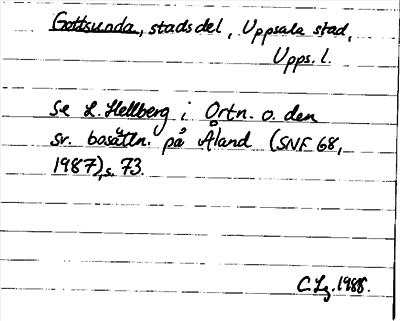 Gottsunda, stadsdel, Uppsala stad,
Upps. l.
Se L. Hellberg i Ortn. o. den
sv. bosättn. på Åland (SNF 68,
1987), s. 73.
C. Lg. 1988.